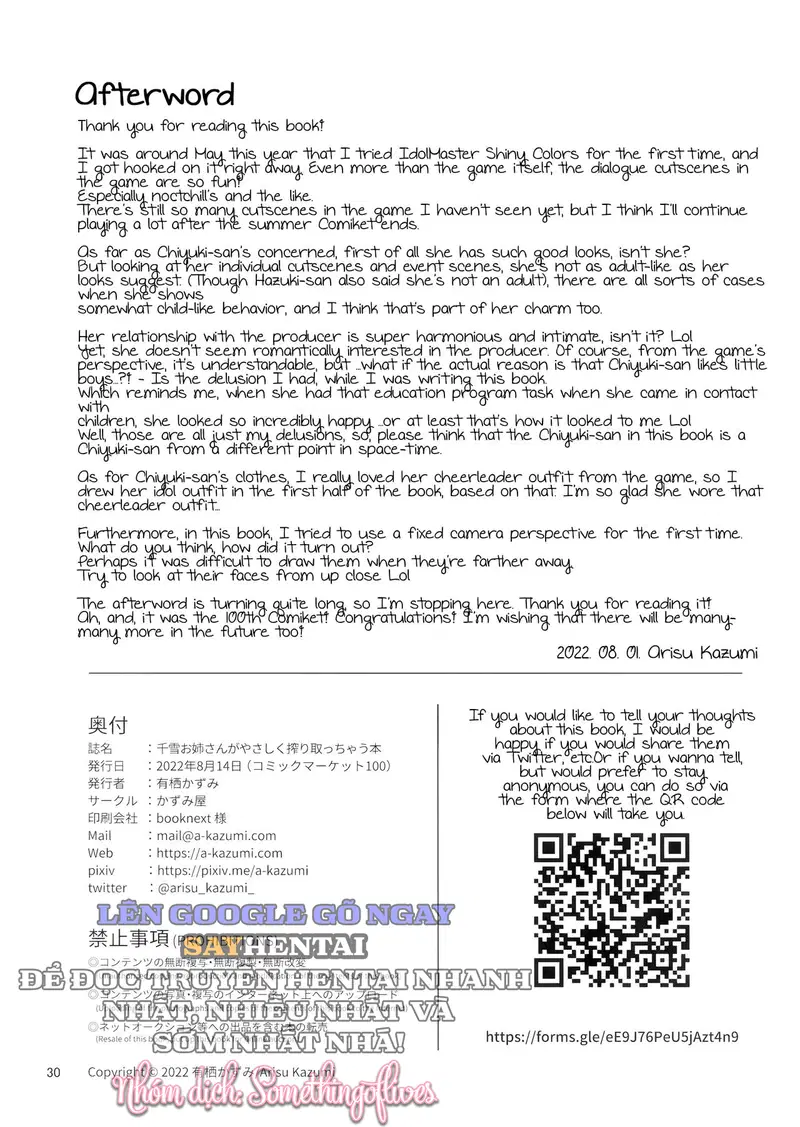 Afterword
Thank you for reading this book!
It was around May this year that I tried IdolMaster Shiny Colors for the first time, and
I got hooked on it right away. Even more than the game itself, the dialogue cutscenes in
the game are so fun!
Especially noctchill's and the like.
There's still so many cutscenes in the game I haven't seen yet, but I think I'll continue
playing a lot after the summer Comiket ends.
As far as Chiyuki-san's concerned, first of all she has such good looks, isn't she?
But looking at her individual cutscenes and event scenes, she's not as adult-like as her
looks suggest. (Though Hazuki-san also said she's not an adult), there are all sorts of cases
when she shows
somewhat child-like behavior, and I think that's part of her charm too.
Her relationship with the producer is super harmonious and intimate, isn't it? Lol
Yet, she doesn't seem romantically interested in the producer. Of course, from the game's
perspective, it's understandable, but ...what if the actual reason is that Chiyuki-san likes little
boys...?! - Is the delusion I had, while I was writing this book.
Which reminds me, when she had that education program task when she came in contact
with
children, she looked so incredibly happy ...or at least that's how it looked to me Lol
Well, those are all just my delusions, so, please think that the Chiyuki-san in this book is a
Chiyuki-san from a different point in space-time.
As for Chiyuki-san's clothes, I really loved her cheerleader outfit from the game, so I
drew her idol outfit in the first half of the book, based on that. I'm so glad she wore that
cheerleader outfit...
Furthermore, in this book, I tried to use a fixed camera perspective for the first time.
What do you think, how did it turn out?
Perhaps it was difficult to draw them when they're farther away.
Try to look at their faces from up close Lol
The afterword is turning quite long, so I'm stopping here. Thank you for reading it!
Ah, and, it was the 100th Comiket! Congratulations! I'm wishing that there will be many-
many more in the future too!
2022. 08. 01. Arisu Kazumi
奥付
誌名 ：千雪お姉さんがやさしく搾り取っちゃう本
発行日 ：2022年8月14日（コミックマーケット100）
発行者 ：有栖かずみ
サークル ：かずみ屋
印刷会社 ：booknext 様
Mail ：mail@a-kazumi.com
Web ：https://a-kazumi.com
pixiv ：https://pixiv.me/a-kazumi
twitter ：@arisu_kazumi_
If you would like to tell your thoughts
about this book, I would be
happy if you would share them
via Twitter, etc.Or if you wanna tell,
but would prefer to stay
anonymous, you can do so via
the form where the QR code
below will take you.
LÊN GOOGLE GÕ NGAY
禁止事項 (PROHIBITIONS)
SAYHENTAI
◎コンテンツの無断複写・無断複製・無断改変
ĐỂ ĐỌC TRUYỆN HENTAI NHANH
◎コンテンツの写真・複写のインターネット上へのアップロード
NHẤT, NHIỀU NHẤT VÀ
◎ネットオークション等への出品を含む本の転売
SỚM NHẤT NHÁ!
https://forms.gle/eE9J76PeU5jAzt4n9
30 Copyright © 2022 有栖かずみ/Arisu Kazumi
Nhóm dịch: Somethingoflives.